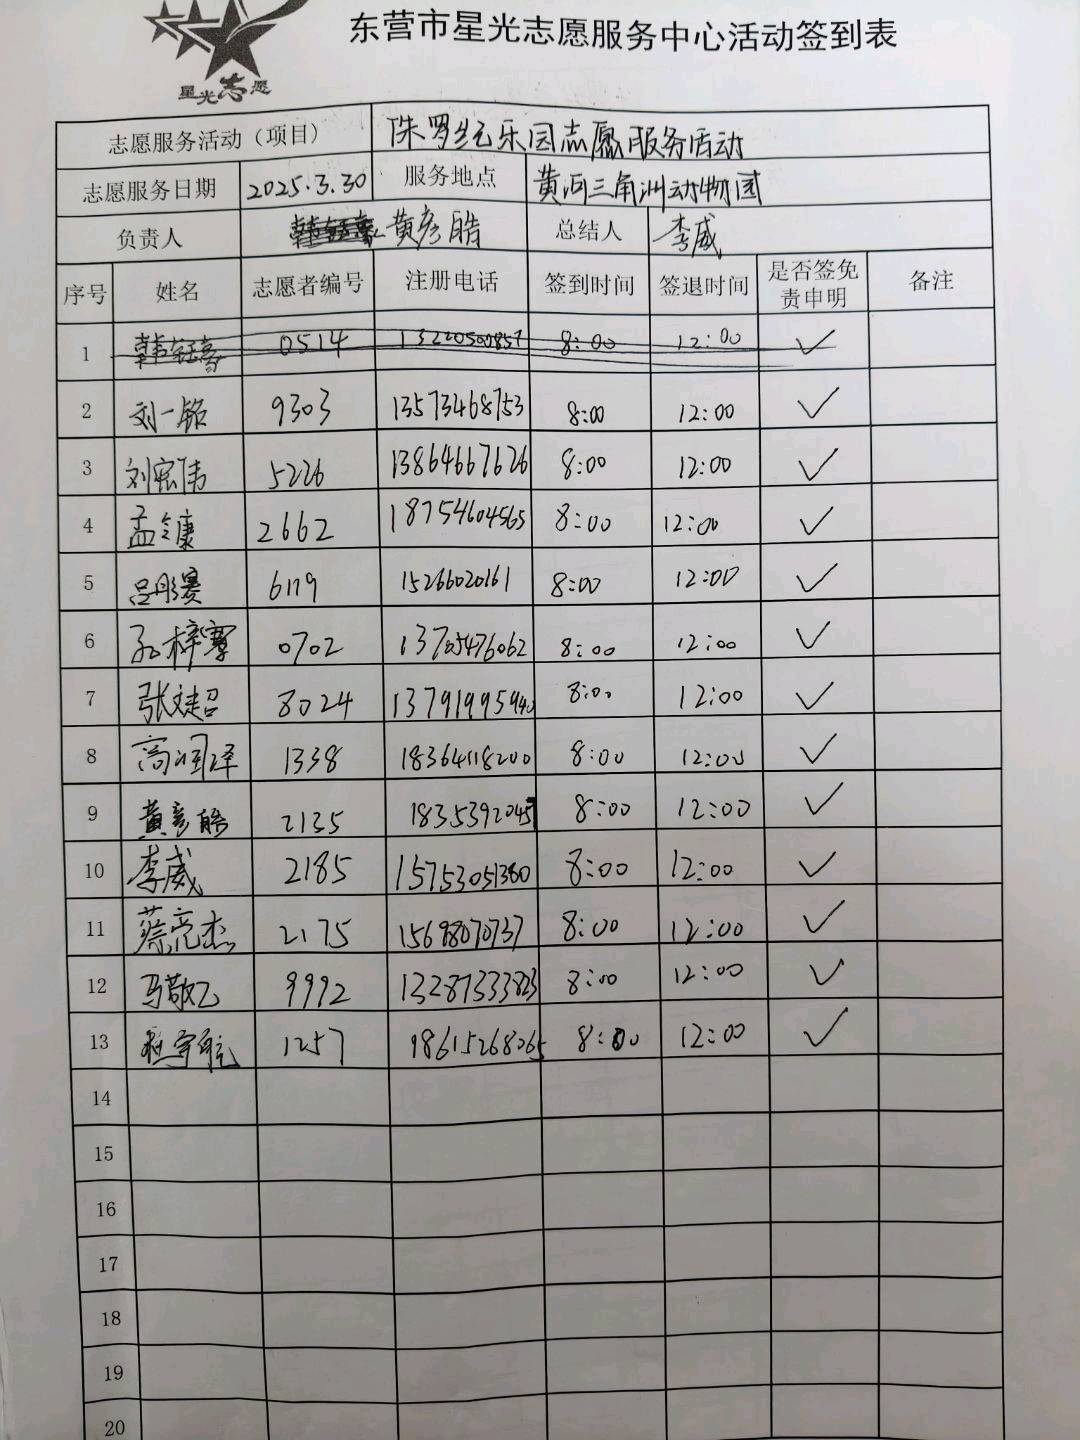 东营市星光志愿服务中心活动签到表
星光志愿
志愿服务活动（项目） 侏罗纪乐园志愿服务活动
志愿服务日期 2025.3.30 服务地点 黄河三角洲动物园
负责人 黄彦皓 总结人 李威
序号 姓名 志愿者编号 注册电话 签到时间 签退时间 是否签免责申明 备注
1 0514 13220500857 8:00 12:00 ✓
2 刘一铭 9303 13573468753 8:00 12:00 ✓
3 刘宏伟 5226 13864667626 8:00 12:00 ✓
4 孟令康 2662 18754604565 8:00 12:00 ✓
5 吕彤赛 6119 15266020161 8:00 12:00 ✓
6 孙梓骞 0702 13705476062 8:00 12:00 ✓
7 张文超 8024 13791995940 8:00 12:00 ✓
8 高润泽 1338 18364118200 8:00 12:00 ✓
9 黄彦皓 2135 1835392045 8:00 12:00 ✓
10 李威 2185 15753051380 8:00 12:00 ✓
11 蔡亮杰 2175 15698070737 8:00 12:00 ✓
12 马敬乙 9992 13287333823 8:00 12:00 ✓
13 程宇航 1257 198615268265 8:00 12:00 ✓
14
15
16
17
18
19
20